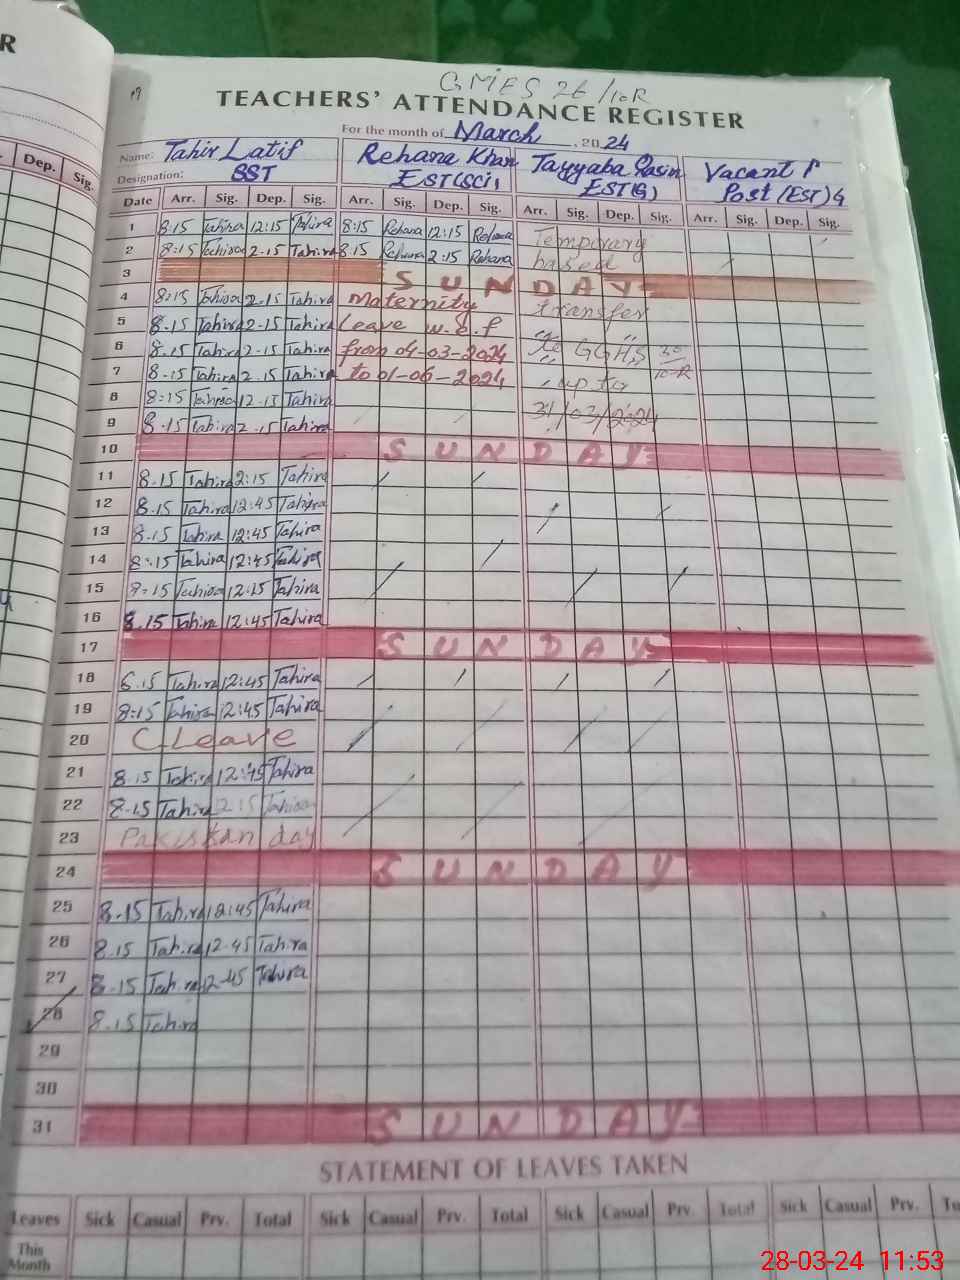 R
19
GMES 26/10R
TEACHERS' ATTENDANCE REGISTER
For the month of March, 2024
Name: Tahir Latif Rehana Khan Tayyaba Qasim Vacant P
Designation: SST EST(SCI) EST(G) Post (EST) G
Dep. Sig. Date Arr. Sig. Dep. Sig. Arr. Sig. Dep. Sig. Arr. Sig. Dep. Sig. Arr. Sig. Dep. Sig.
1 8:15 Tahira 12:15 Tahira 8:15 Rehana 12:15 Rehana Temporary
2 8:15 Tahira 2-15 Tahira 8.15 Rehana 2:15 Rehana based
3 SUNDAY
4 8:15 Tahira 2-15 Tahira Maternity transfer
5 8.15 Tahira 2-15 Tahira Leave w.e.f
6 8.15 Tahira 2-15 Tahira from 04-03-2024 To GGHS 30/10-R
7 8-15 Tahira 2.15 Tahira to 01-06-2024 up to
8 8:15 Tahira 12-15 Tahira 31/03/2024
9 8-15 Tahira 2-15 Tahira
10 SUNDAY
11 8.15 Tahira 2:15 Tahira
12 8.15 Tahira 12:45 Tahira
13 8.15 Tahira 12:45 Tahira
14 8:15 Tahira 12:45 Tahira
15 8:15 Tahira 12:15 Tahira
16 8.15 Tahira 12:45 Tahira
17 SUNDAY
18 8.15 Tahira 12:45 Tahira
19 8:15 Tahira 12:45 Tahira
20 C Leave
21 8.15 Tahira 12:45 Tahira
22 8-15 Tahira 2:15 Tahira
23 Pakistan day
24 SUNDAY
25 8-15 Tahira 12:45 Tahira
26 8.15 Tahira 12-45 Tahira
27 8.15 Tahira 2-45 Tahira
28 8.15 Tahira
29
30
31 SUNDAY
STATEMENT OF LEAVES TAKEN
Leaves Sick Casual Prv. Total Sick Casual Prv. Total Sick Casual Prv. Total Sick Casual Prv.
This
Month
28-03-24 11:53